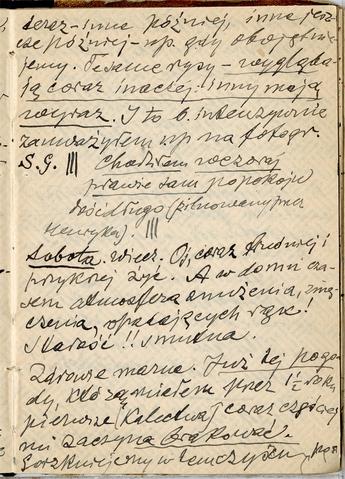 teraz – inne później, inne jesz-
cze później – np. gdy obojętnie
jemy. Te same rysy – wygląda-
ją coraz inaczej. Inny mają
wyraz. I to b. intensywnie
zauważyłem np na fotogr.
S.G. ||| Chodziłem wczoraj
prawie sam po pokoju
dość długo (pilnowany przez
Henryka). |||
Sobota. wiecz. Oj, coraz trudniej i
przykrzej żyć. A w domu cza-
sem atmosfera znużenia, zmę-
czenia, opadających rąk.
Starość!! Smutna.
Zdrowie marne. Już tej pogo-
dy, którą miałem przez 1½ roku
pierwsze [kalectwa] coraz częściej
mi zaczyna brakować.